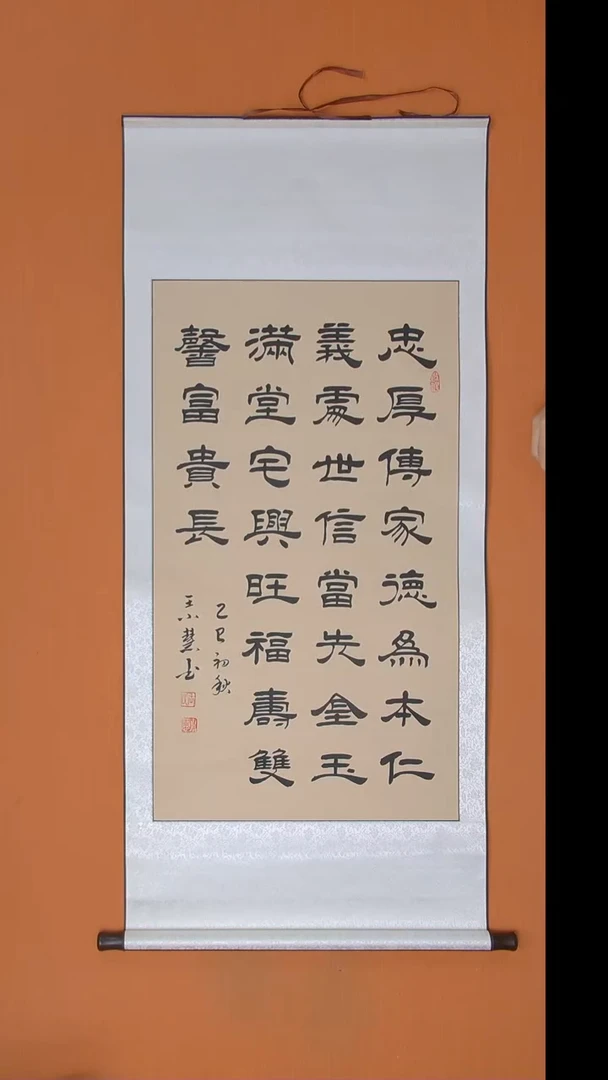 忠厚傳家德為本仁
義處世信當先金玉
滿堂宅興旺福壽雙
馨富貴長
乙巳初秋
王小慧书